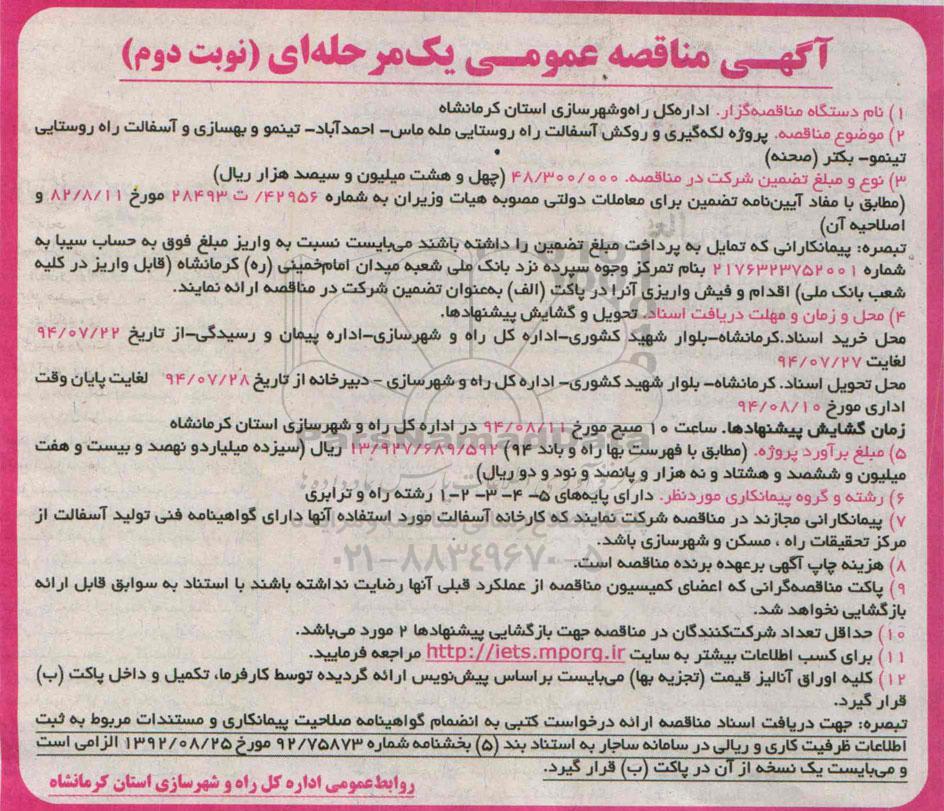 آگهی مناقصه عمومی یک‌مرحله‌ای (نوبت دوم)
۱) نام دستگاه مناقصه‌گزار. اداره‌کل راه‌وشهرسازی استان کرمانشاه
۲) موضوع مناقصه. پروژه لکه‌گیری و روکش آسفالت راه روستایی مله ماس- احمدآباد- تینمو و بهسازی و آسفالت راه روستایی
تینمو- بکتر (صحنه)
۳) نوع و مبلغ تضمین شرکت در مناقصه. ۴۸/۳۰۰/۰۰۰ (چهل و هشت میلیون و سیصد هزار ریال)
(مطابق با مفاد آیین‌نامه تضمین برای معاملات دولتی مصوبه هیات وزیران به شماره ۴۲۹۵۶/ ت ۲۸۴۹۳ مورخ ۸۲/۸/۱۱ و
اصلاحیه آن)
تبصره: پیمانکارانی که تمایل به پرداخت مبلغ تضمین را داشته باشند می‌بایست نسبت به واریز مبلغ فوق به حساب سیبا به
شماره ۲۱۷۶۳۲۳۷۵۲۰۰۱ بنام تمرکز وجوه سپرده نزد بانک ملی شعبه میدان امام‌خمینی (ره) کرمانشاه (قابل واریز در کلیه
شعب بانک ملی) اقدام و فیش واریزی آنرا در پاکت (الف) به‌عنوان تضمین شرکت در مناقصه ارائه نمایند.
۴) محل و زمان و مهلت دریافت اسناد. تحویل و گشایش پیشنهادها.
محل خرید اسناد.کرمانشاه-بلوار شهید کشوری-اداره کل راه و شهرسازی-اداره پیمان و رسیدگی-از تاریخ ۹۴/۰۷/۲۲
لغایت ۹۴/۰۷/۲۷
محل تحویل اسناد. کرمانشاه- بلوار شهید کشوری- اداره کل راه و شهرسازی - دبیرخانه از تاریخ ۹۴/۰۷/۲۸ لغایت پایان وقت
اداری مورخ ۹۴/۰۸/۱۰
زمان گشایش پیشنهادها. ساعت ۱۰ صبح مورخ ۹۴/۰۸/۱۱ در اداره کل راه و شهرسازی استان کرمانشاه
ParsNamadData
۵) مبلغ برآورد پروژه. (مطابق با فهرست بها راه و باند ۹۴) ۱۳/۹۲۷/۶۸۹/۵۹۲ ریال (سیزده میلیاردو نهصد و بیست و هفت
میلیون و ششصد و هشتاد و نه هزار و پانصد و نود و دو ریال)
۶) رشته و گروه پیمانکاری موردنظر. دارای پایه‌های ۵- ۴- ۳- ۲-۱ رشته راه و ترابری
۷) پیمانکارانی مجازند در مناقصه شرکت نمایند که کارخانه آسفالت مورد استفاده آنها دارای گواهینامه فنی تولید آسفالت از
مرکز تحقیقات راه ، مسکن و شهرسازی باشد.
۰۲۱-۸۸۳۴۹۶۷۰-۵
۸) هزینه چاپ آگهی برعهده برنده مناقصه است.
۹) پاکت مناقصه‌گرانی که اعضای کمیسیون مناقصه از عملکرد قبلی آنها رضایت نداشته باشند با استناد به سوابق قابل ارائه
بازگشایی نخواهد شد.
۱۰) حداقل تعداد شرکت‌کنندگان در مناقصه جهت بازگشایی پیشنهادها ۲ مورد می‌باشد.
۱۱) برای کسب اطلاعات بیشتر به سایت http://iets.mporg.ir مراجعه فرمایید.
۱۲) کلیه اوراق آنالیز قیمت (تجزیه بها) می‌بایست براساس پیش‌نویس ارائه گردیده توسط کارفرما، تکمیل و داخل پاکت (ب)
قرار گیرد.
تبصره: جهت دریافت اسناد مناقصه ارائه درخواست کتبی به انضمام گواهینامه صلاحیت پیمانکاری و مستندات مربوط به ثبت
اطلاعات ظرفیت کاری و ریالی در سامانه ساجار به استناد بند (۵) بخشنامه شماره ۹۲/۷۵۸۷۳ مورخ ۱۳۹۲/۰۸/۲۵ الزامی است
و می‌بایست یک نسخه از آن در پاکت (ب) قرار گیرد.
روابط‌عمومی اداره کل راه و شهرسازی استان کرمانشاه